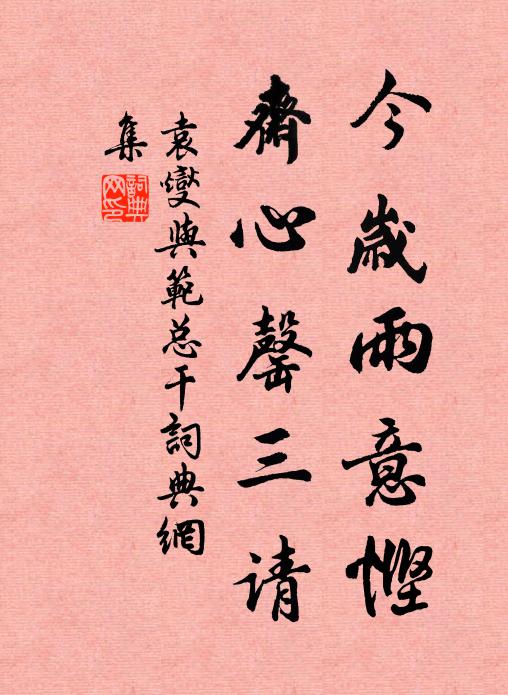 今歲雨意慳
齋心罄三请
袁燮與範总干詞典網
集
詞典网印